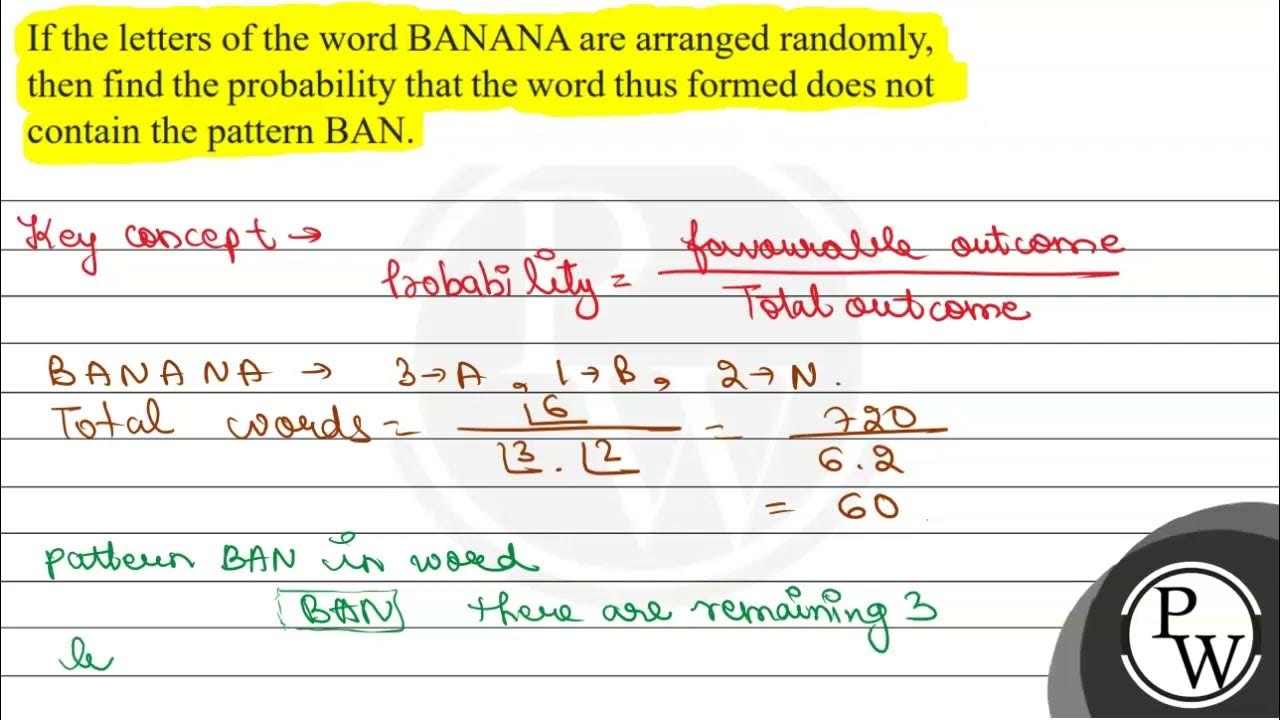 If the letters of the word BANANA are arranged randomly,
then find the probability that the word thus formed does not
contain the pattern BAN.
Key concept →
Probability = favourable outcome / Total outcome
BANANA → 3→A , 1→B, 2→N.
Total words = ⌊6 / ⌊3 . ⌊2 = 720 / 6.2
= 60
pattern BAN in word
BAN there are remaining 3
le
PW